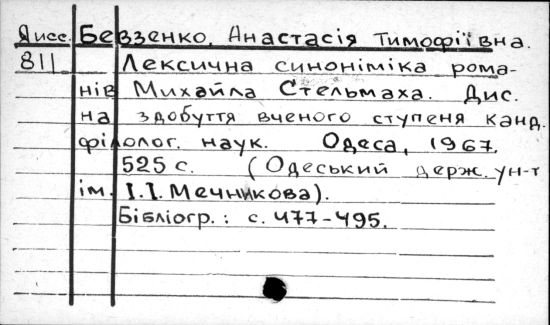 Дисс. Бевзенко, Анастасія Тимофіївна.
811 Лексична синоніміка рома-
нів Михайла Стельмаха. Дис.
на здобуття вченого ступеня канд.
філолог. наук. Одеса, 1967.
525 с. (Одеський держ. ун-т
ім. І.І. Мечникова).
Бібліогр.: с. 477-495.